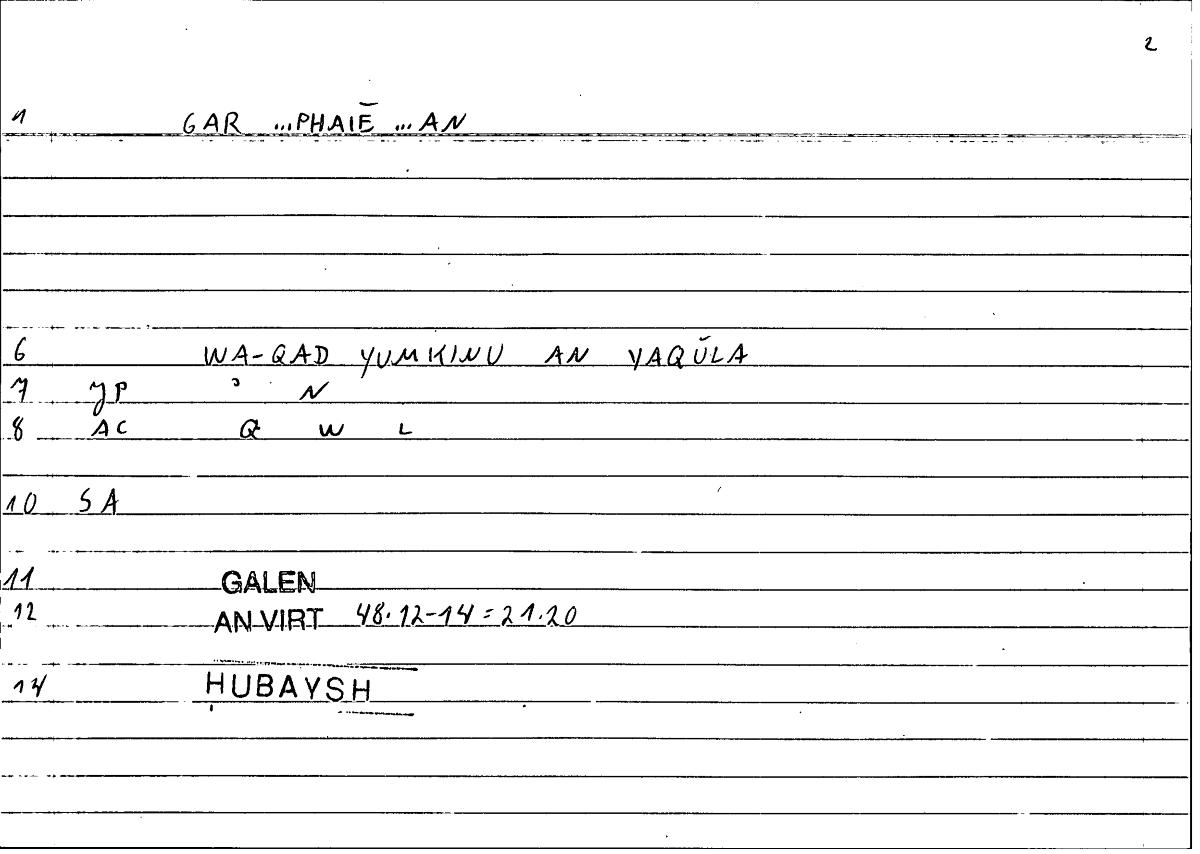 2
1 GAR ...PHAIĒ ...AN
6 WA-QAD YUMKINU AN YAQŪLA
7 JP ʾ N
8 AC Q W L
10 SA
11 GALEN
12 AN VIRT 48.12-14=21.20
14 HUBAYSH